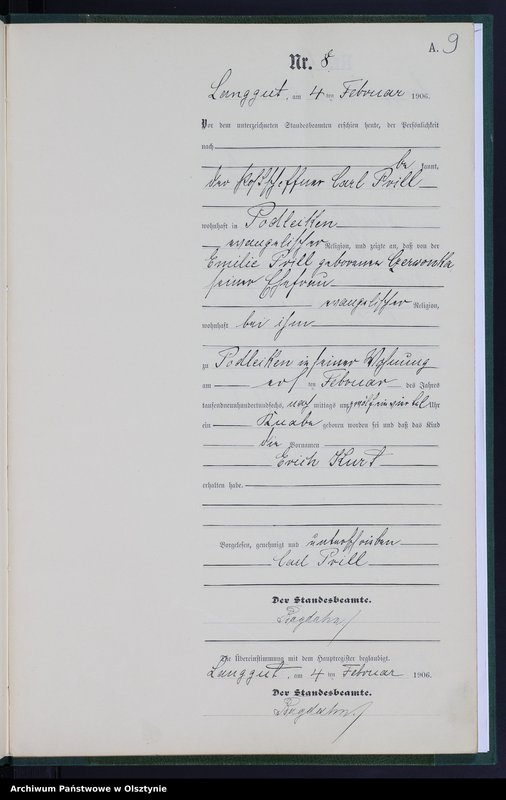 A. 9
Nr. 8
Langgut, am 4 ten Februar 1906.
Vor dem unterzeichneten Standesbeamten erschien heute, der Persönlichkeit
nach
be kannt,
der Carl Prill
wohnhaft in Podleiken
evangelischer Religion, und zeigte an, daß von der
Emilie Prill geborenen Czerwonka
seiner Ehefrau
evangelischer Religion,
wohnhaft bei ihm
zu Podleiken in seiner Wohnung
am ten Februar des Jahres
tausendneunhundertundsechs, nach mittags um Uhr
ein Knabe geboren worden sei und daß das Kind
die Vornamen
Erich Kurt
erhalten habe.
Vorgelesen, genehmigt und unterschrieben
Carl Prill
Der Standesbeamte.
Die Übereinstimmung mit dem Hauptregister beglaubigt.
Langgut, am 4 ten Februar 1906.
Der Standesbeamte.
Archiwum Państwowe w Olsztynie